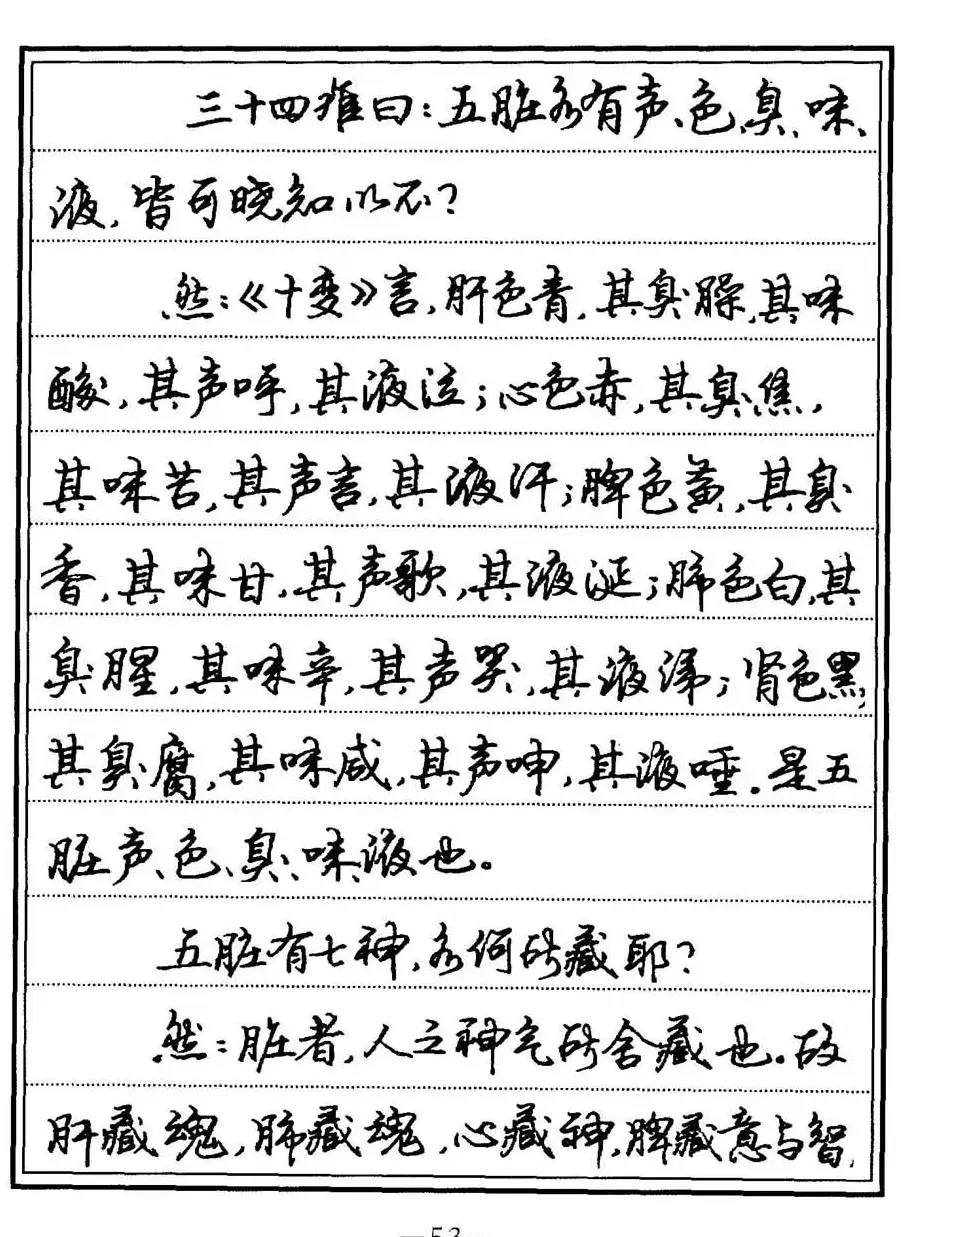 三十四难曰：五脏各有声、色、臭、味、
液，皆可晓知以不？
然：《十变》言，肝色青，其臭臊，其味
酸，其声呼，其液泣；心色赤，其臭焦，
其味苦，其声言，其液汗；脾色黄，其臭
香，其味甘，其声歌，其液涎；肺色白，其
臭腥，其味辛，其声哭，其液涕；肾色黑，
其臭腐，其味咸，其声呻，其液唾。是五
脏声、色、臭、味、液也。
五脏有七神，各何所藏耶？
然：脏者，人之神气所舍藏也。故
肝藏魂，肺藏魂，心藏神，脾藏意与智，
—53—